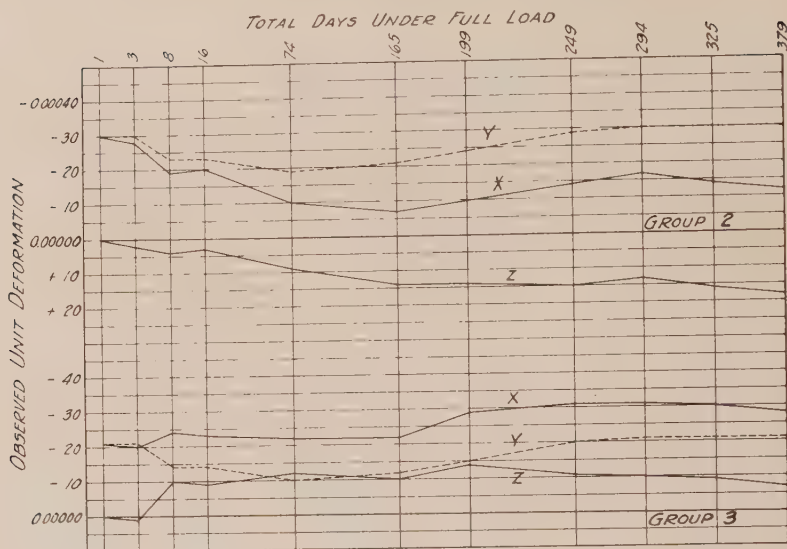 TOTAL DAYS UNDER FULL LOAD
1 3 8 16 74 165 199 249 294 325 379
OBSERVED UNIT DEFORMATION
- 0.00040
- 30
- 20
- 10
0.00000
+ 10
+ 20
Y
X
GROUP 2
Z
- 40
- 30
- 20
- 10
0.00000
X
Y
Z
GROUP 3